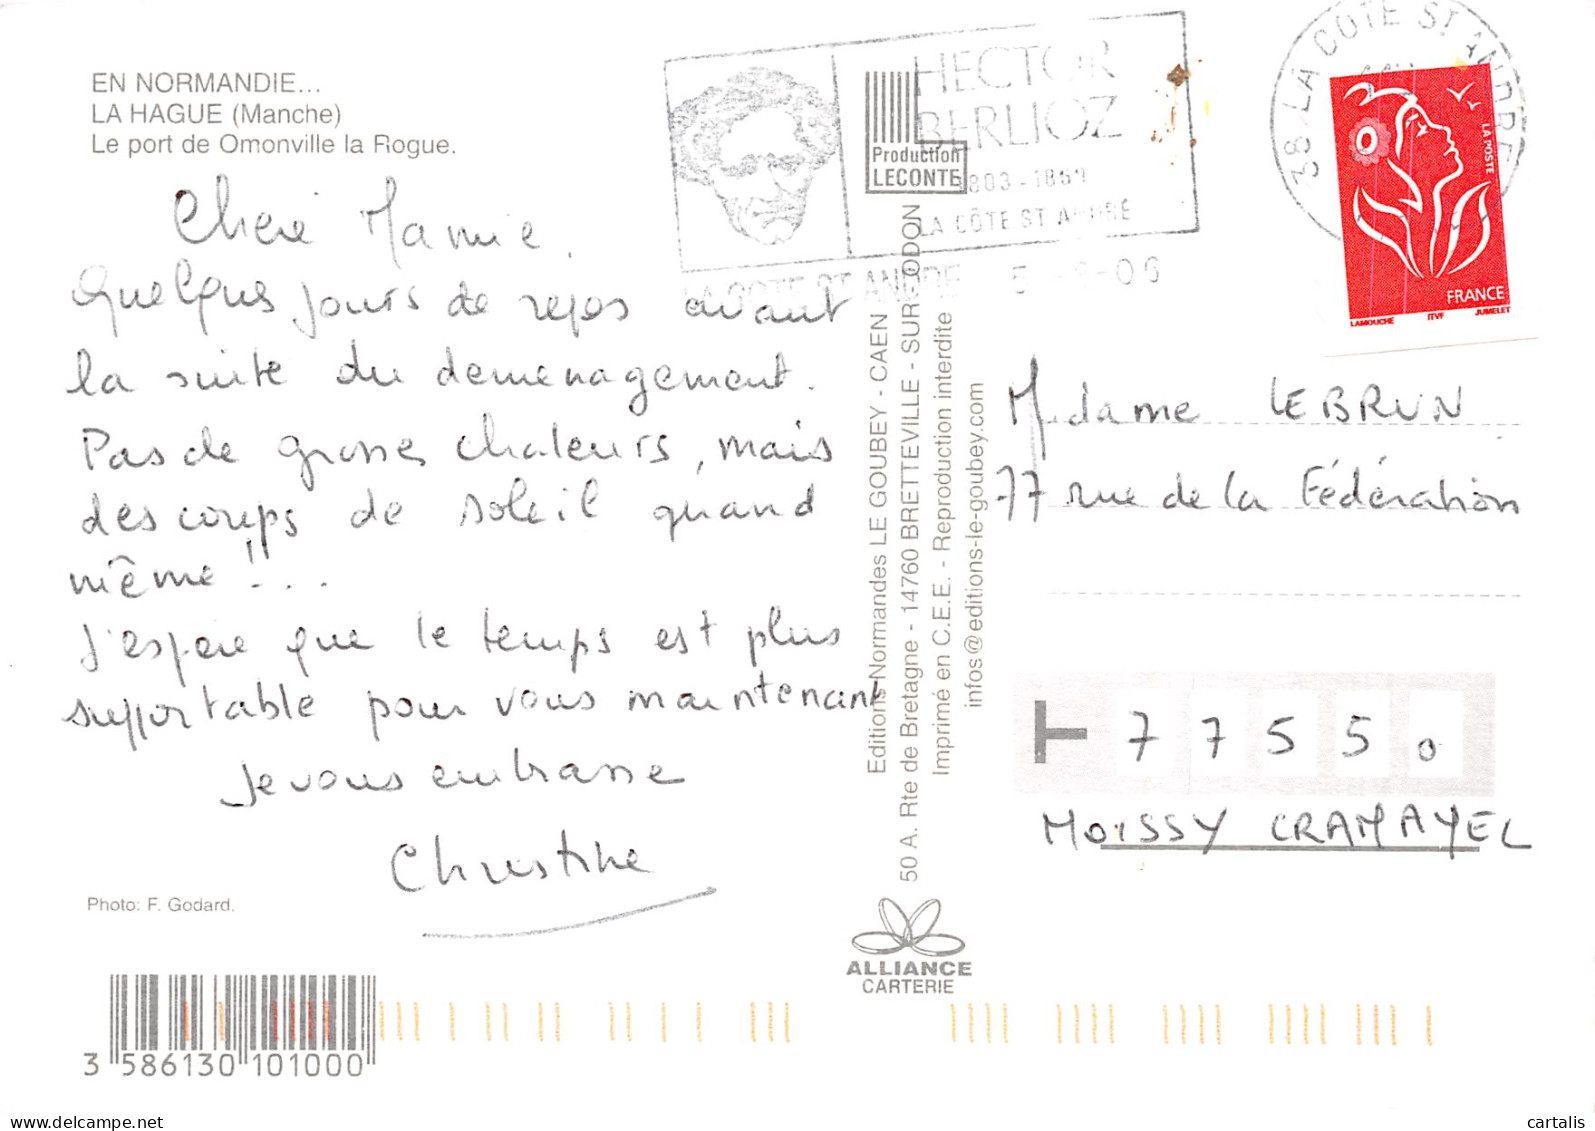 EN NORMANDIE...
LA HAGUE (Manche)
Le port de Omonville la Rogue.
Chère Mamie,
Quelques jours de repos avant
la suite du demenagement.
Pas de grosses chaleurs, mais
des coups de soleil quand
même!!...
J'espere que le temps est plus
supportable pour vous maintenant
Je vous embrasse
Christine
Photo: F. Godard.
3 586130 101000
HECTOR
BERLIOZ
1803-1869
LA CÔTE ST ANDRÉ
LA COTE ST ANDRE
Production
LECONTE
38 LA COTE ST ANDRE
LA POSTE
FRANCE
LAMOUCHE ITVF JUMELET
Editions Normandes LE GOUBEY - CAEN
50 A. Rte de Bretagne - 14760 BRETTEVILLE - SUR - ODON
Imprimé en C.E.E. - Reproduction interdite
infos@editions-le-goubey.com
ALLIANCE
CARTERIE
Madame LEBRUN
77 rue de la Fédération
77550
MOISSY CRAMAYEL
www.delcampe.net
cartalis